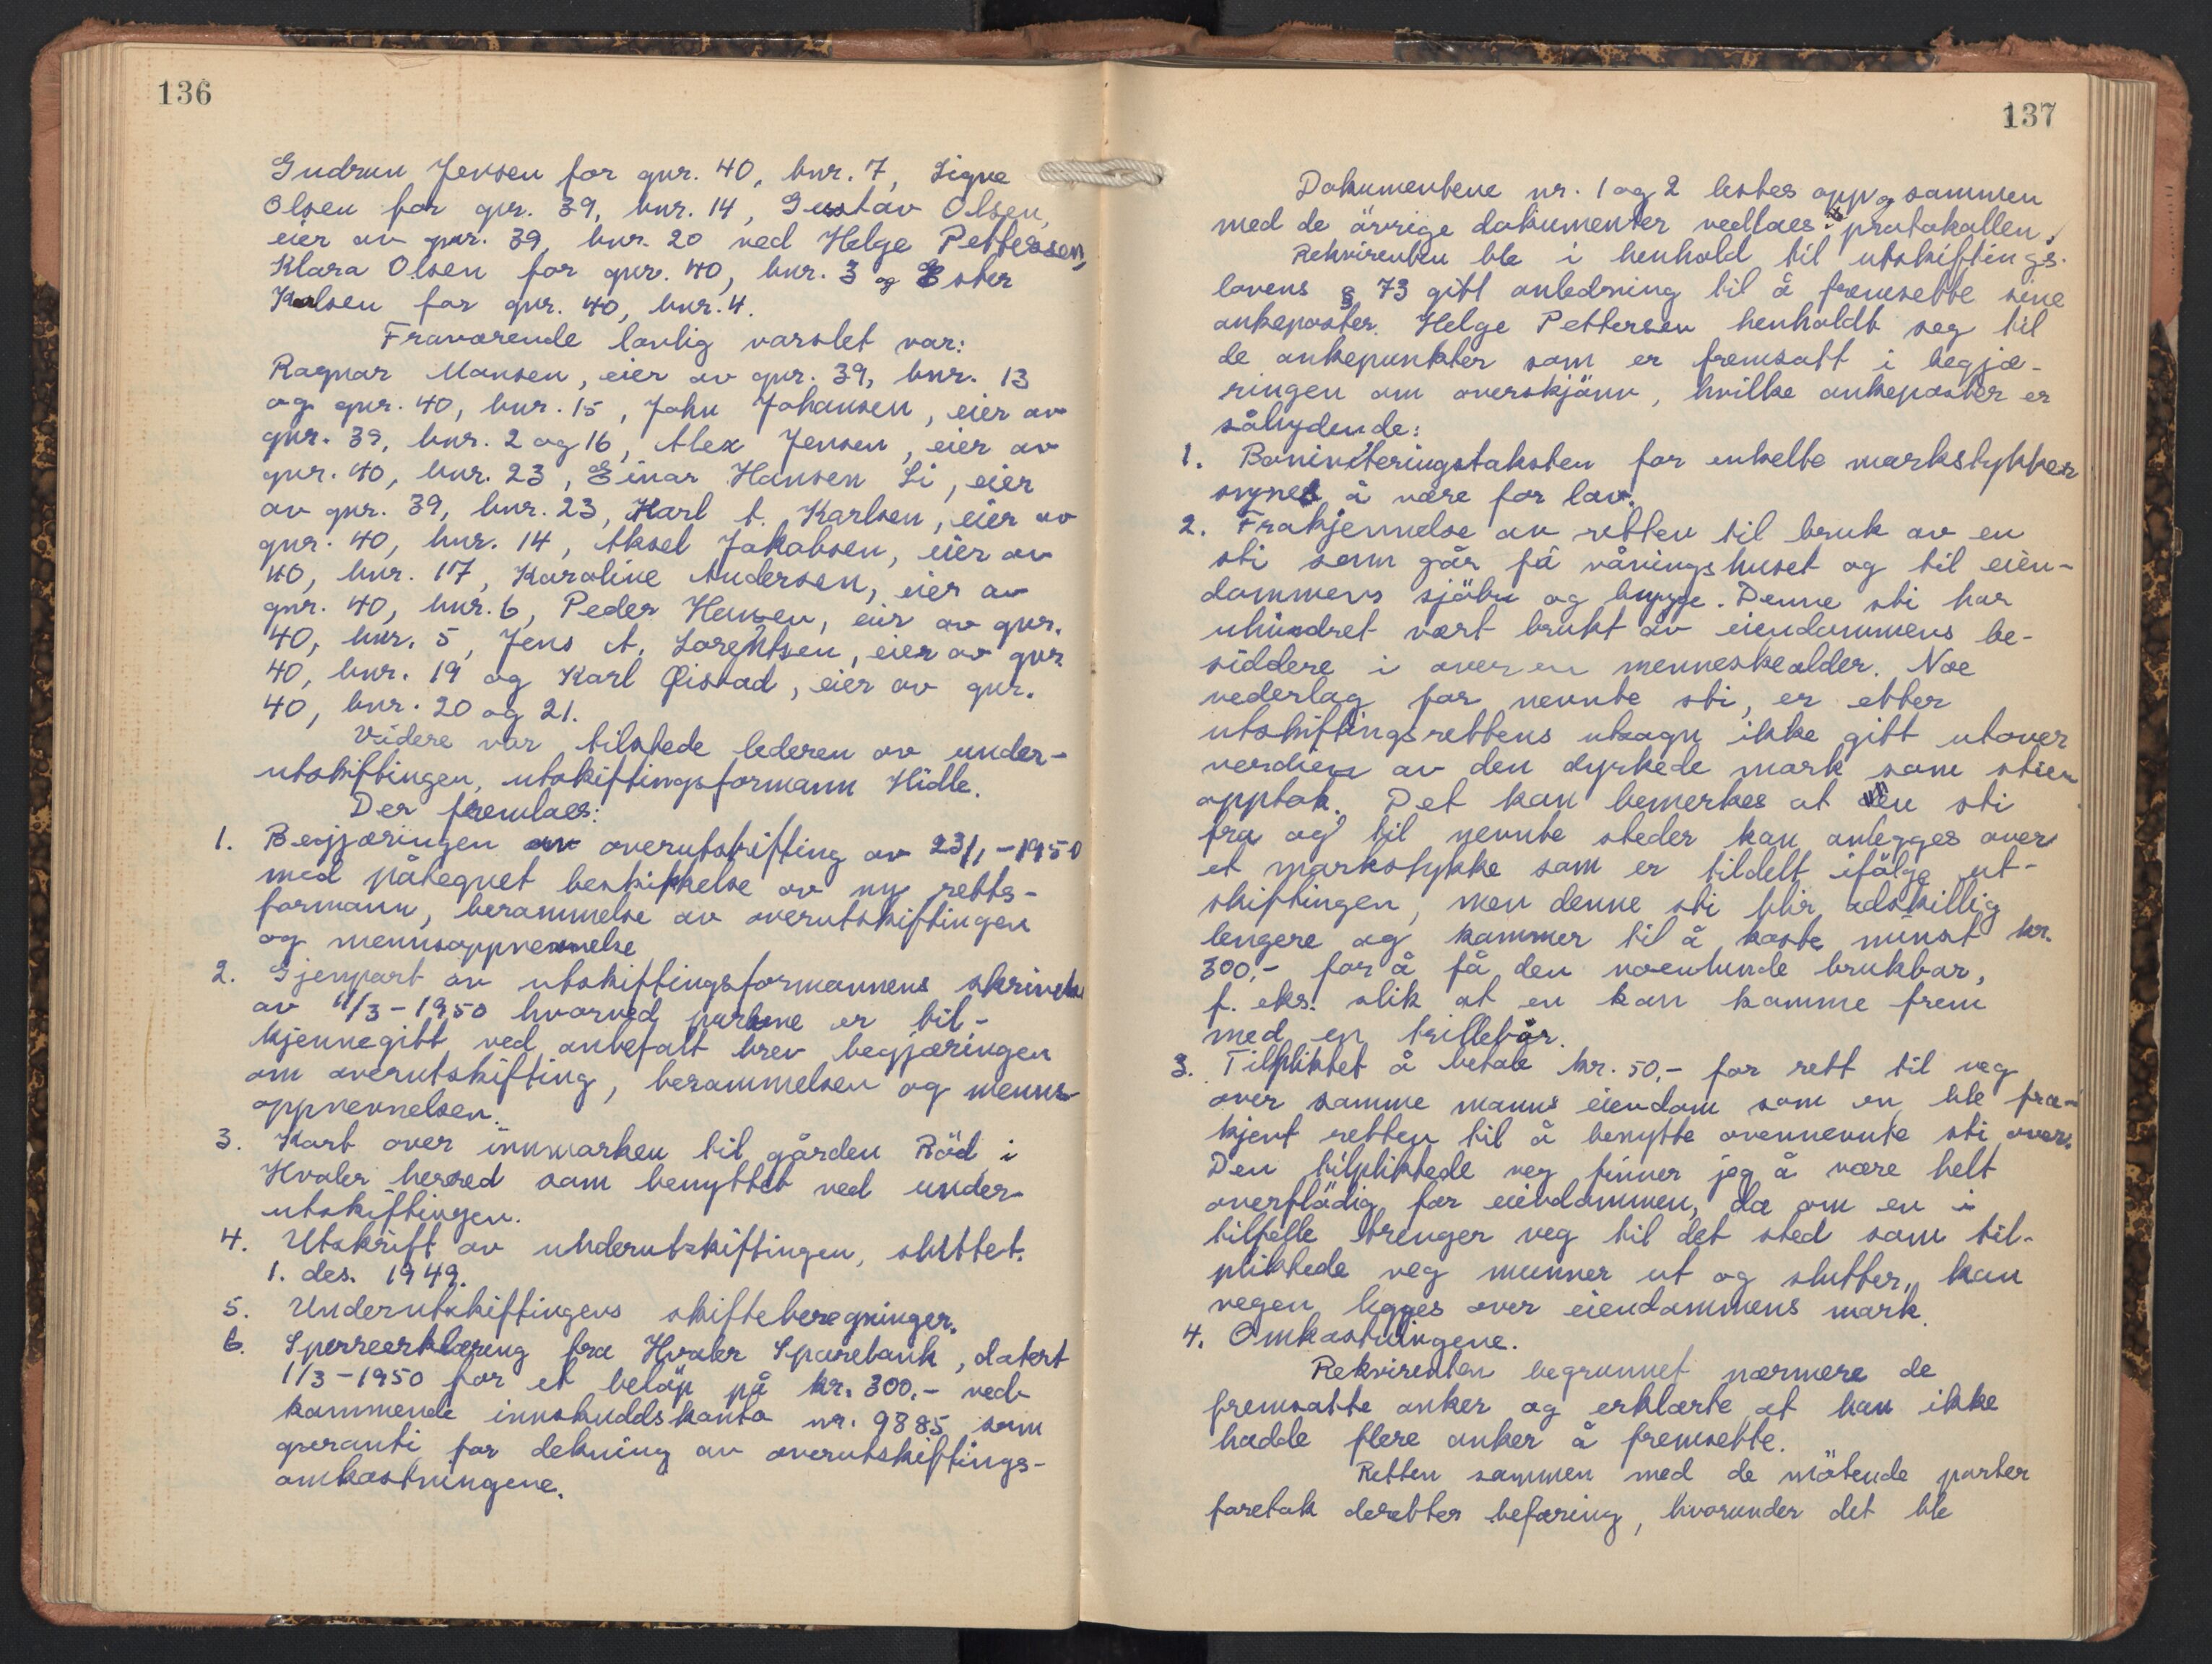 136
Gudrun Jensen for gnr. 40, bnr. 7, Signe
Olsen for gnr. 39, bnr. 14, Gustav Olsen,
eier av gnr. 39, bnr. 20 ved Helge Pettersen,
Klara Olsen for gnr. 40, bnr. 3 og Ester
Karlsen for gnr. 40, bnr. 4.
Fraværende lovlig varslet var:
Ragnar Hansen, eier av gnr. 39, bnr. 13
og gnr. 40, bnr. 15, John Johansen, eier av
gnr. 39, bnr. 2 og 16, Alex Jensen, eier av
gnr. 40, bnr. 23, Einar Hansen Li, eier
av gnr. 39, bnr. 23, Karl A. Karlsen, eier av
gnr. 40, bnr. 14, Aksel Jakobsen, eier av
40, bnr. 17, Karoline Andersen, eier av
gnr. 40, bnr. 6, Peder Hansen, eier av gnr.
40, bnr. 5, Jens A. Lorentsen, eier av gnr.
40, bnr. 19 og Karl Øistad, eier av gnr.
40, bnr. 20 og 21.
Videre var tilstede lederen av under-
utskiftingen, utskiftingsformann Hidle.
Der fremlaes:
1. Begjæringen om overutskifting av 23/1-1950
med påtegnet beskikkelse av ny retts-
formann, berammelse av overutskiftingen
og mennsoppnevnelse
2. Gjenpart av utskiftingsformannens skrivelse
av 11/3-1950 hvorved partene er til-
kjennegitt ved anbefalt brev begjæringen
om overutskifting, berammelsen og menns-
oppnevnelsen.
3. Kart over innmarken til gården Röd i
Hvaler herred som benyttet ved under-
utskiftingen.
4. Utskrift av underutskiftingen, sluttet.
1. des. 1949.
5. Underutskiftingens skifteberegninger.
6. Sperreerklæring fra Hvaler Sparebank, datert
1/3-1950 for et belöp på kr. 300,- ved-
kommende innskuddskonto nr. 9885 som
garanti for dekning av overutskiftings-
omkostningene.
137
Dokumentene nr. 1 og 2 lestes opp og sammen
med de övrige dokumenter vedlaes protokollen.
Rekvirenten ble i henhold til utskiftings-
lovens § 73 gitt anledning til å fremsette sine
ankeposter. Helge Pettersen henholdt seg til
de ankepunkter som er fremsatt i begjæ-
ringen om overskjönn, hvilke ankeposter er
sålydende:
1. Boniteringstaksten for enkelte markstykker
synes å være for lav.
2. Frakjennelse av retten til bruk av en
sti som går få våningshuset og til eien-
dommens sjöbu og brygge. Denne sti har
uhindret vært brukt av eiendommens be-
siddere i over en menneskealder. Noe
vederlag for nevnte sti, er etter
utskiftingsrettens utsagn ikke gitt utover
verdien av den dyrkede mark som stien
opptok. Det kan bemerkes at en sti
fra og til nevnte steder kan anlegges over
et markstykke som er tildelt ifölge ut-
skiftingen, men denne sti blir adskillig
lengere og kommer til å koste minst kr.
300,- for å få den noenlunde brukbar,
f. eks. slik at en kan komme frem
med en trillebår.
3. Tilpliktet å betale kr. 50,- for rett til veg
over samme manns eiendom som en ble fra-
kjent retten til å benytte ovennevnte sti over.
Den tilpliktede veg finner jeg å være helt
overflödig for eiendommen, da om en i
tilfelle trenger veg til det sted som til-
pliktede veg munner ut og slutter, kan
vegen legges over eiendommens mark.
4. Omkostningene.
Rekvirenten begrunnet nærmere de
fremsatte anker og erklærte at han ikke
hadde flere anker å fremsette.
Retten sammen med de mötende parter
foretok deretter befaring, hvorunder det ble